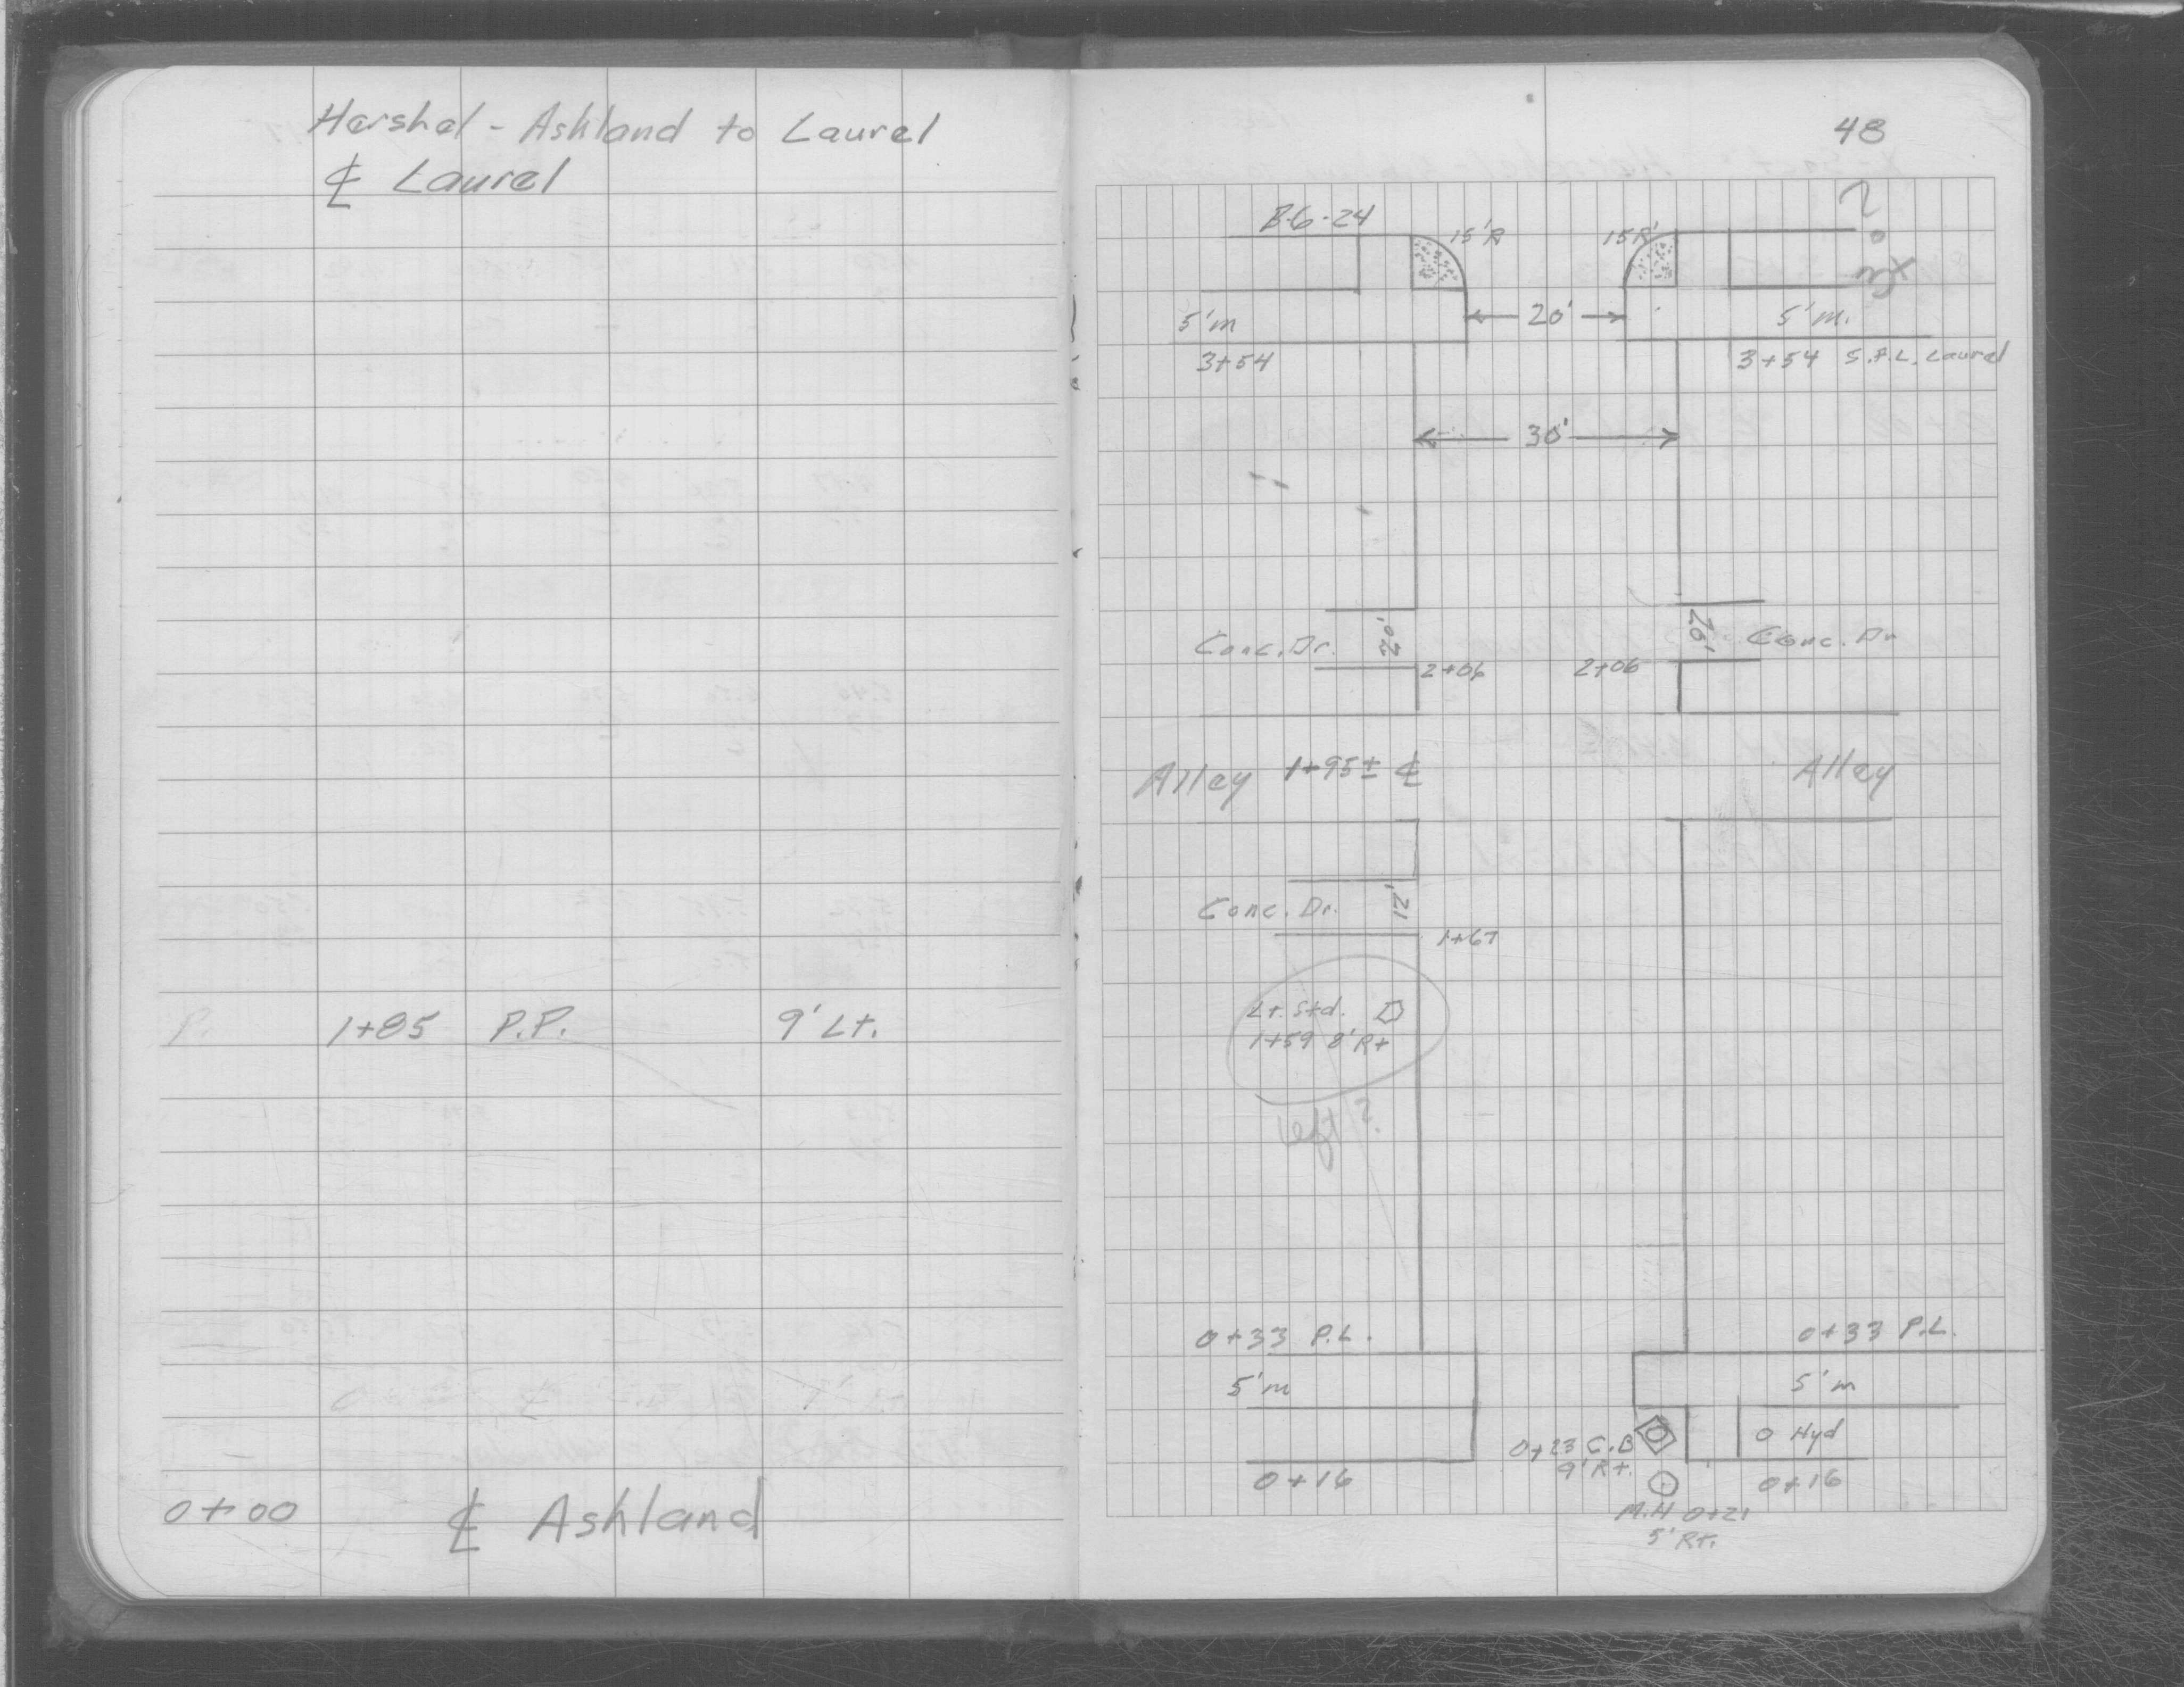 Hershel - Ashland to Laurel
℄ Laurel
P. 1+85 P.P. 9' Lt.
0+00 ℄ Ashland
48
B-6-24 15'R 15R'
20'
5'm 5'm.
3+54 3+54 S.P.L. Laurel
30'
Conc. Dr. 20' 20' Conc. Dr
2+06 2+06
Alley 1+95± ℄ Alley
Conc. Dr. 12'
1+67
Lt. Std.
1+59 8' Rt
left?
0+33 P.L. 0+33 P.L.
5'm 5'm
0+23 C.B O Hyd
9' Rt.
0+16 0+16
M.H 0+21
5' Rt.